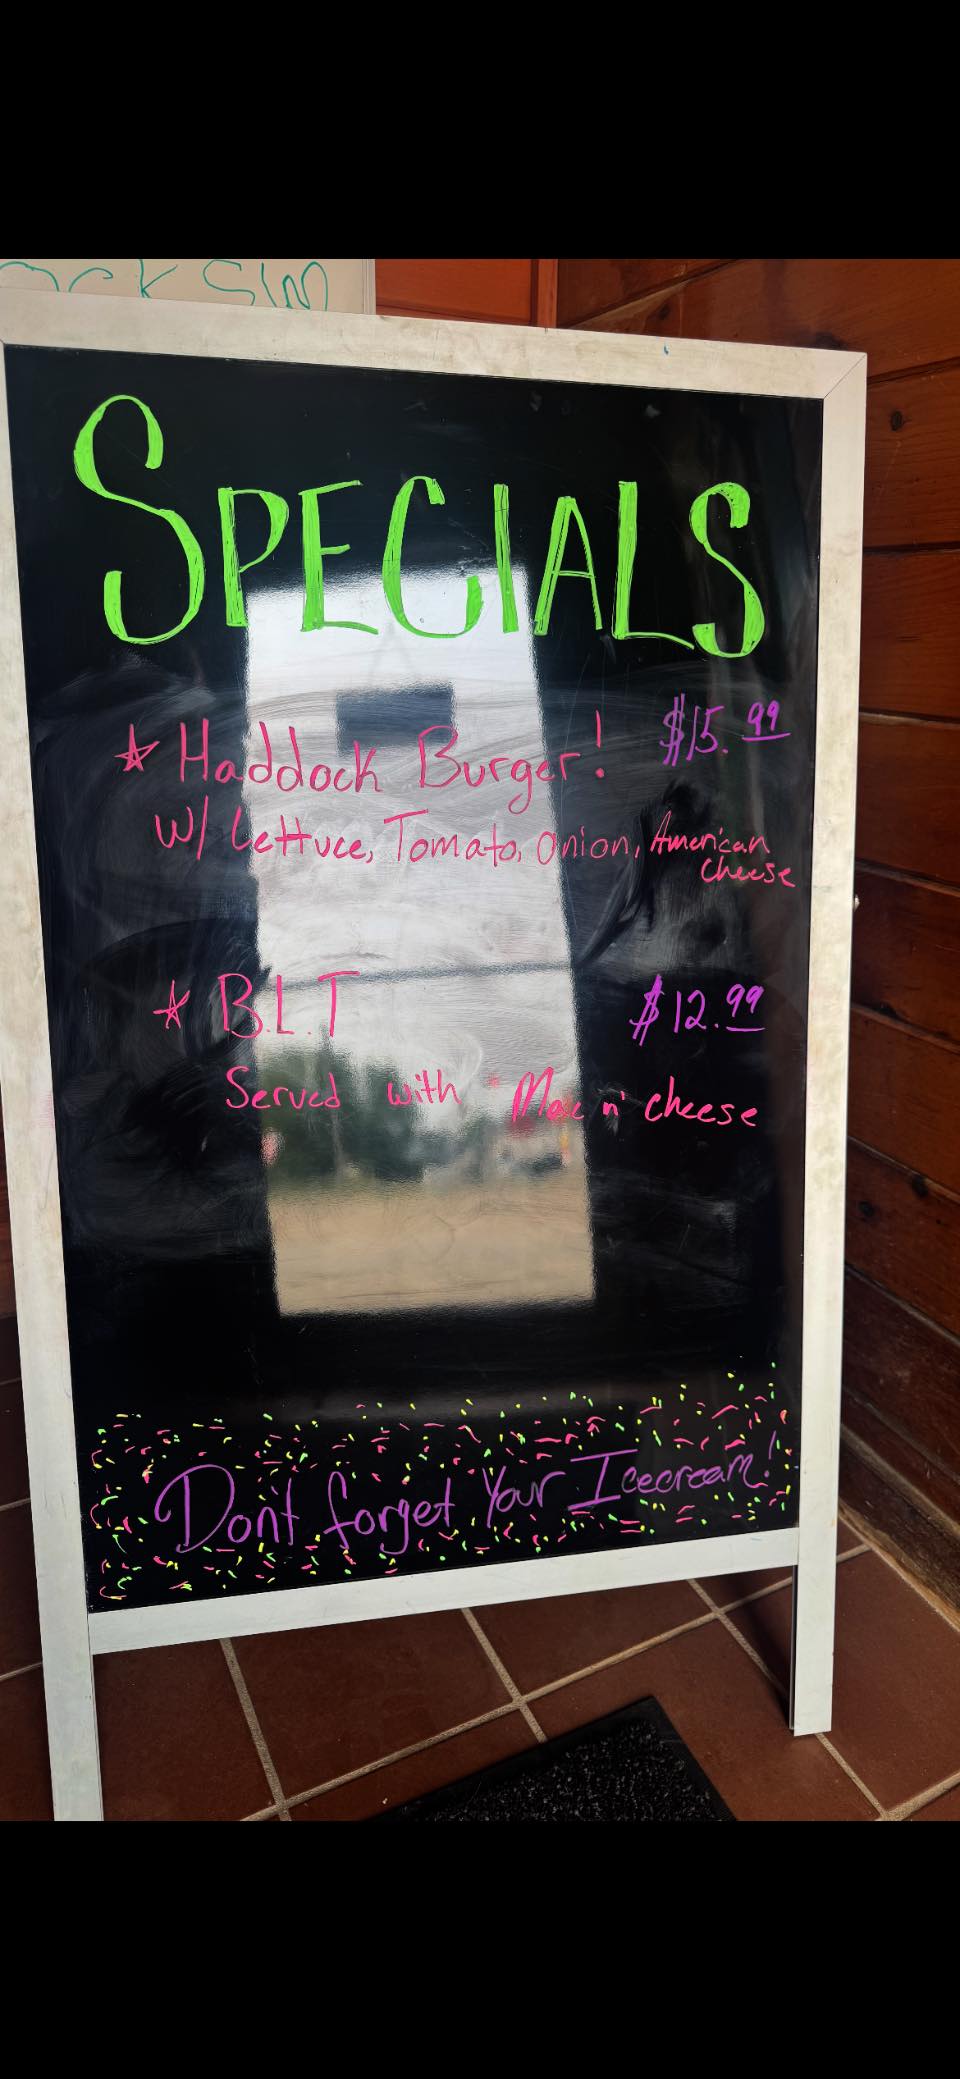 SPECIALS
☆ Haddock Burger! $15.99
W/ Lettuce, Tomato, Onion, American
Cheese
☆ B.L.T $12.99
Served with Mac n' cheese
Don't forget Your Icecream!